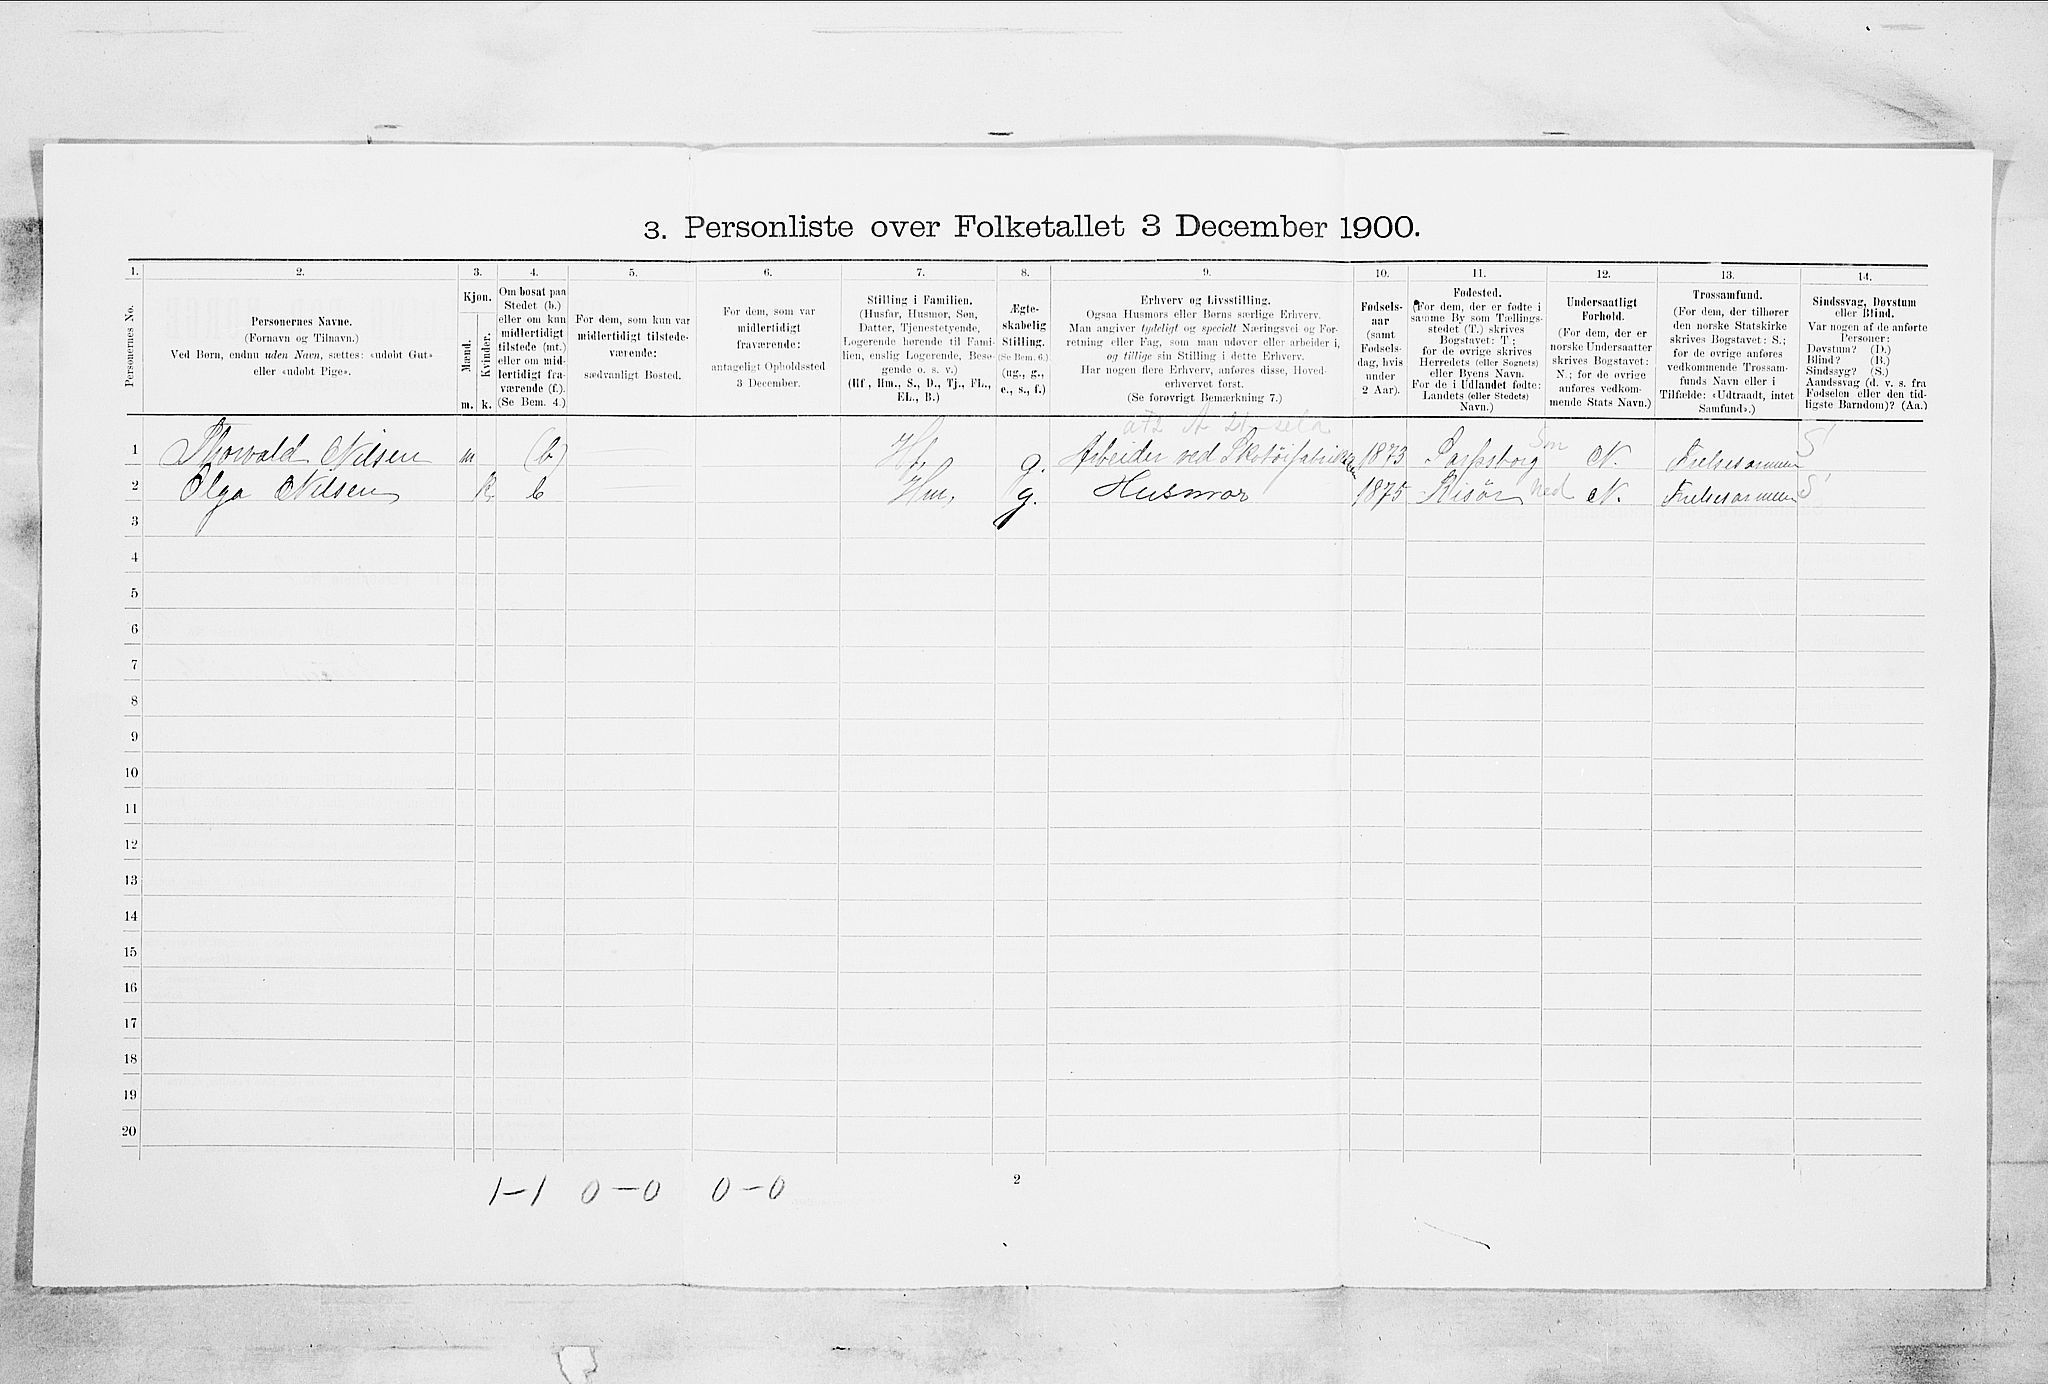 3. Personliste over Folketallet 3 December 1900.
1. 2. 3. 4. 5. 6. 7. 8. 9. 10. 11. 12. 13. 14.
Personernes No.
Personernes Navne.
(Fornavn og Tilnavn.)
Ved Børn, endnu uden Navn, sættes: «udøbt Gut»
eller «udøbt Pige».
Kjøn.
Mænd.
Kvinder.
m. k.
Om bosat paa
Stedet (b.)
eller om kun
midlertidigt
tilstede (mt.)
eller om mid-
lertidigt fra-
værende (f.)
(Se Bem. 4.)
For dem, som kun var
midlertidigt tilstede-
værende:
sædvanligt Bosted.
For dem, som var
midlertidigt
fraværende:
antageligt Opholdssted
3 December.
Stilling i Familien.
(Husfar, Husmor, Søn,
Datter, Tjenestetyende,
Logerende hørende til Fami-
lien, enslig Logerende, Besø-
gende o. s. v.)
(Hf., Hm., S., D., Tj., FL.,
EL., B.)
Ægte-
skabelig
Stilling.
(Se Bem. 6.)
(ug., g.,
e., s., f.)
Erhverv og Livsstilling.
Ogsaa Husmors eller Børns særlige Erhverv.
Man angiver tydeligt og specielt Næringsvei og For-
retning eller Fag, som man udøver eller arbeider i,
og tillige sin Stilling i dette Erhverv.
Har nogen flere Erhverv, anføres disse, Hoved-
erhvervet først.
(Se forøvrigt Bemærkning 7.)
Fødsels-
aar
(samt
Fødsels-
dag, hvis
under
2 Aar).
Fødested.
(For dem, der er fødte i
samme By som Tællings-
stedet (T.) skrives
Bogstavet: T.;
for de øvrige skrives
Herredets (eller Sognets)
eller Byens Navn.
For de i Udlandet fødte:
Landets (eller Stedets)
Navn.)
Undersaatligt
Forhold.
(For dem, der er
norske Undersaatter
skrives Bogstavet:
N.; for de øvrige
anføres vedkom-
mende Stats Navn.)
Trossamfund.
(For dem, der tilhører
den norske Statskirke
skrives Bogstavet: S.;
for de øvrige anføres
vedkommende Trossam-
funds Navn eller i
Tilfælde: «Udtraadt, intet
Samfund».)
Sindssvag, Døvstum
eller Blind.
Var nogen af de anførte
Personer:
Døvstum? (D.)
Blind? (B.)
Sindssyg? (S.)
Aandssvag (d. v. s. fra
Fødselen eller den tid-
ligste Barndom)? (Aa.)
1 Thorvald Nilsen m (b) Hf, g. Arbeider ved Skotøifabrikken 1873 Sarpsborg N. Frelsesarmeen S
2 Olga Nilsen k b Hm, g. Husmor 1875 Risør Ned N. Frelsesarmeen S
3
4
5
6
7
8
9
10
11
12
13
14
15
16
17
18
19
20
1-1 0-0 0-0
2